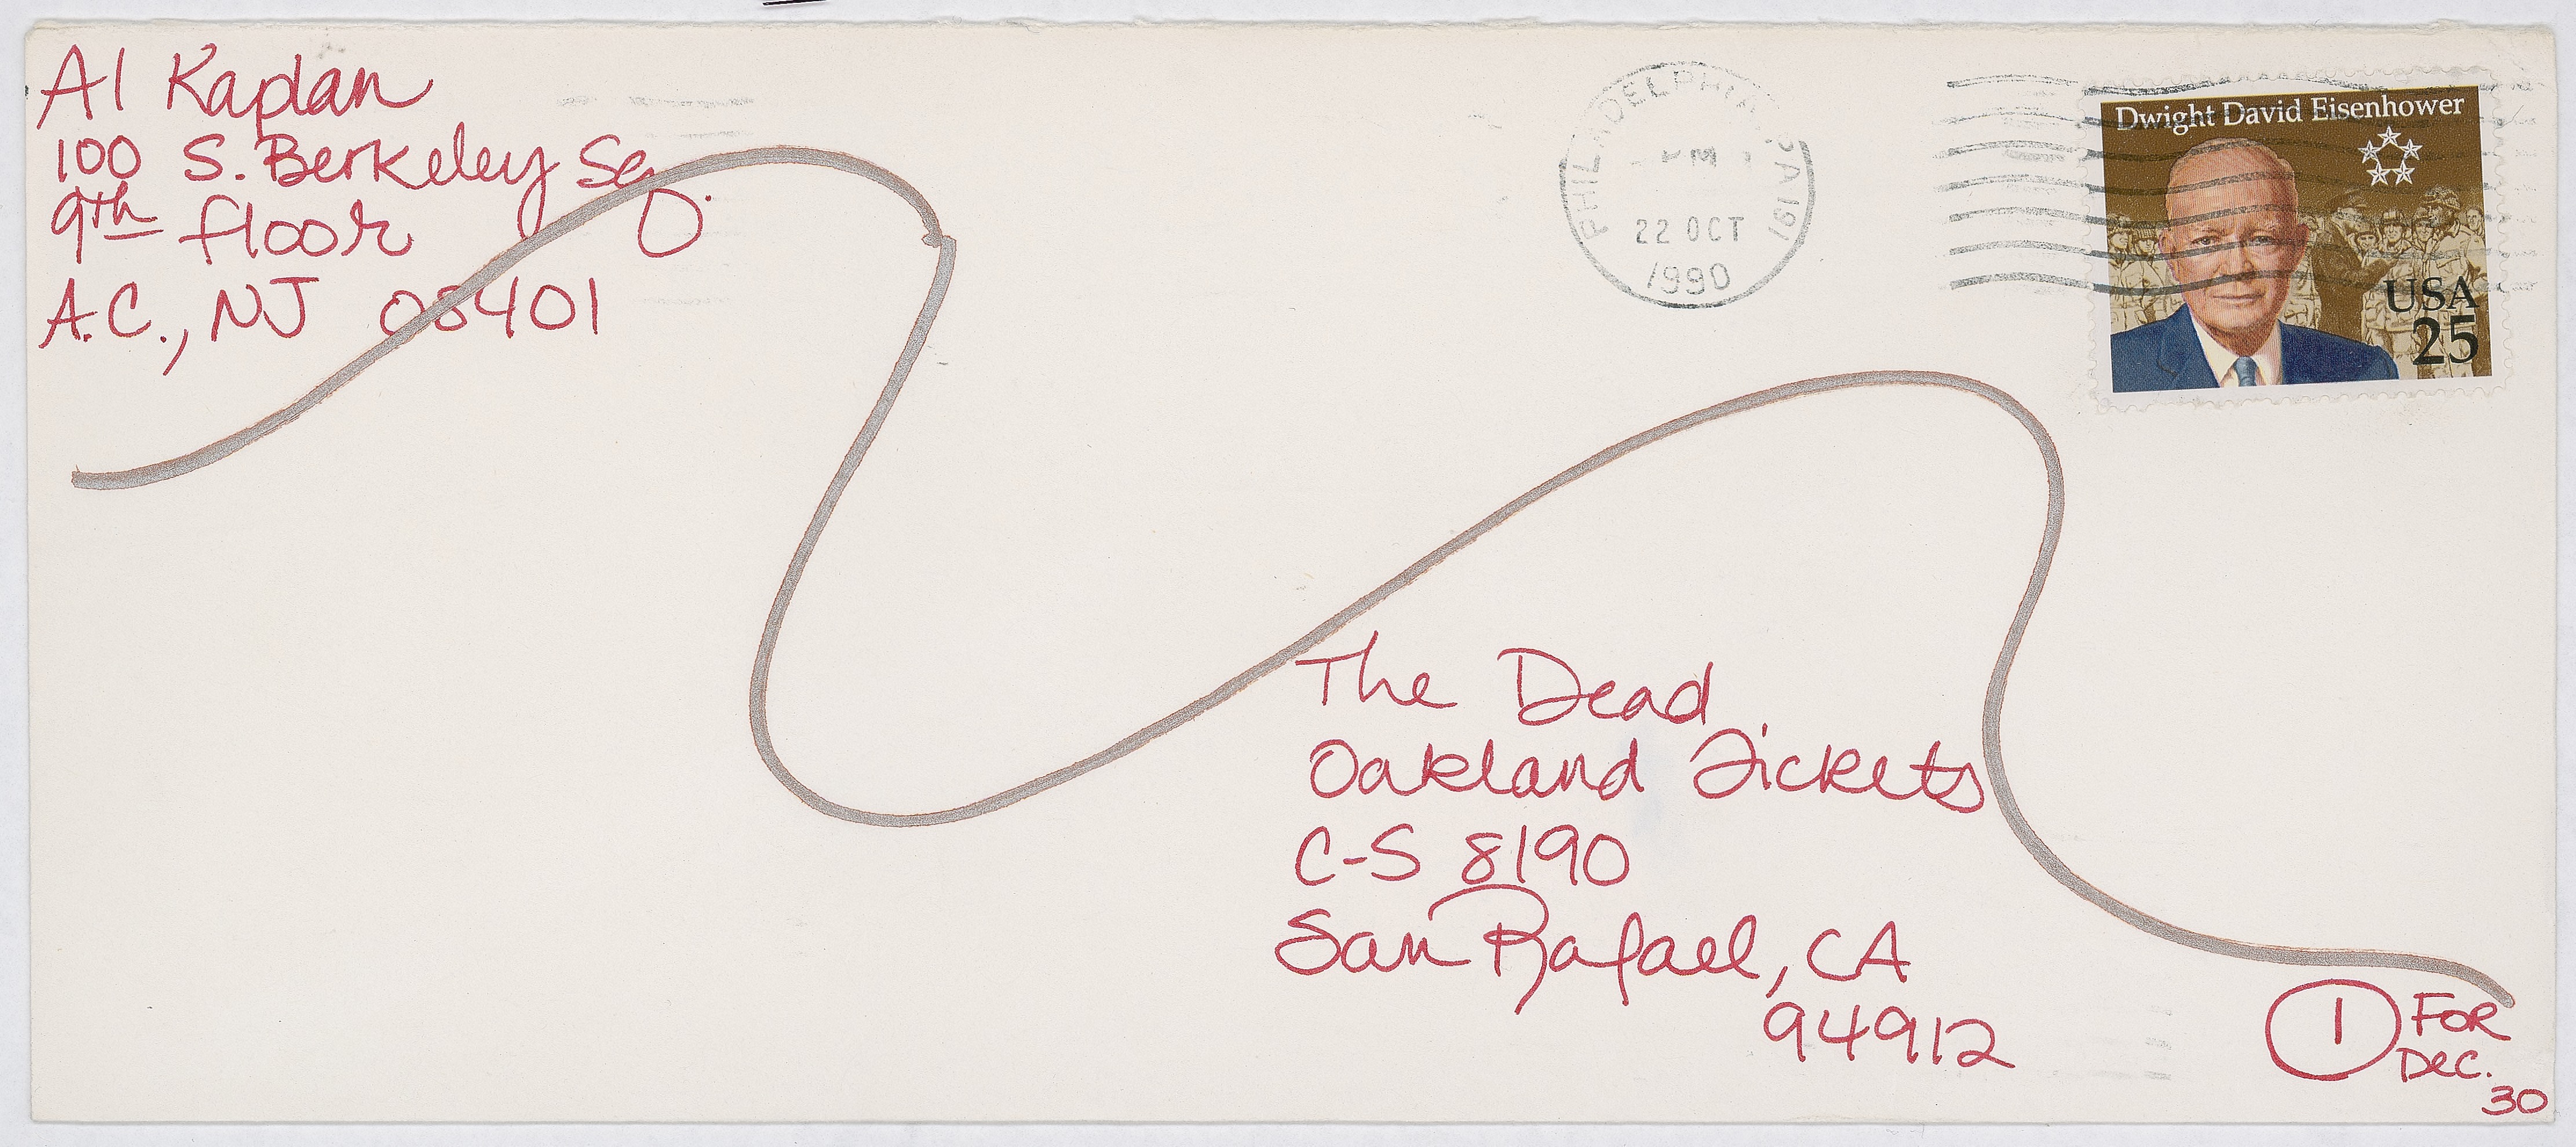 Al Kaplan
100 S. Berkeley Sq.
9th floor
A.C., NJ 08401
PHILADELPHIA PA 191
PM
22 OCT
1990
Dwight David Eisenhower
USA
25
The Dead
Oakland Tickets
C-S 8190
San Rafael, CA
94912
1 FOR
DEC.
30